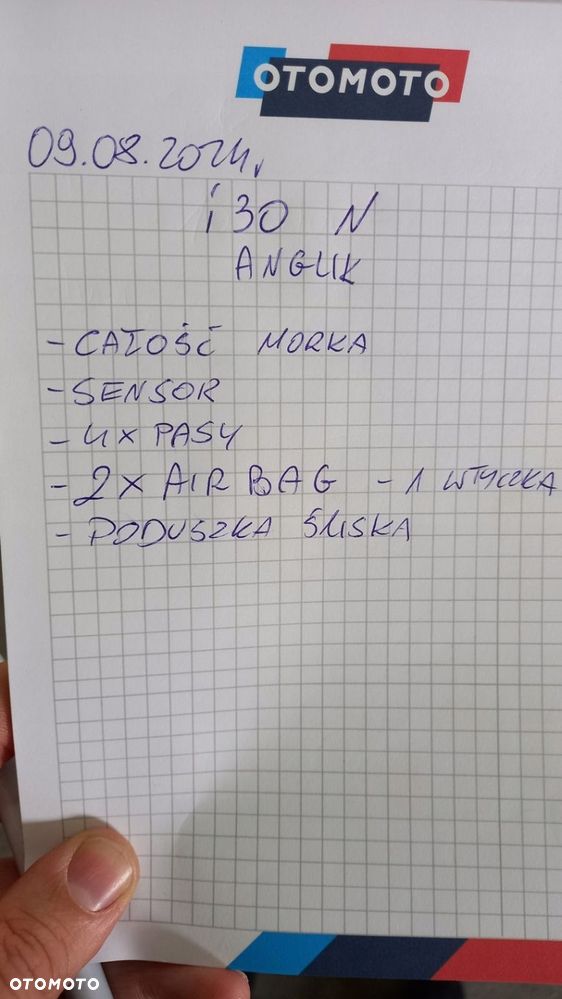 OTOMOTO
09.08.2024r
i30 N
ANGLIK
- CAŁOŚĆ MOKRA
- SENSOR
- 4x PASY
- 2x AIR BAG - 1 WTYCZKA
- PODUSZKA ŚLISKA
OTOMOTO